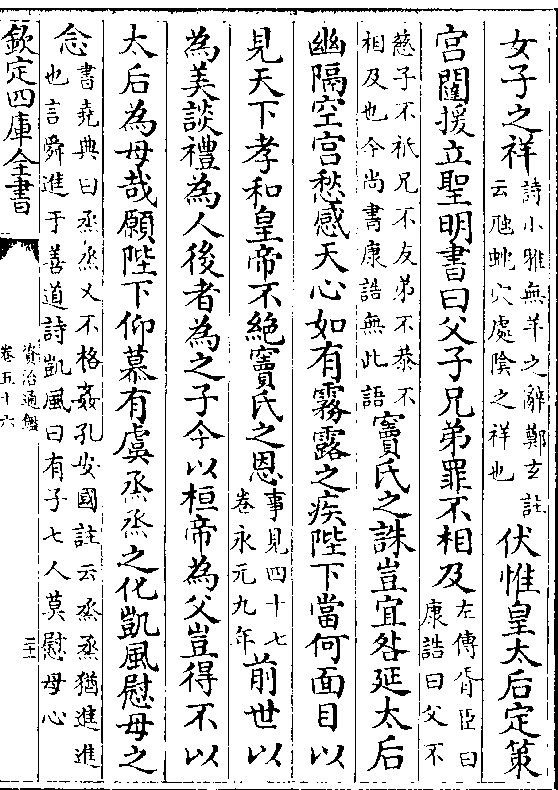 女子之祥詩小雅無羊之辭鄭玄註云虺蛇穴處隂之祥也伏惟皇太后定策
宫闈援立聖明書曰父子兄弟罪不相及左傳胥臣曰康誥曰父不
慈子不祗兄不友弟不恭不相及也今尚書康誥無此語竇氏之誅豈宜咎延太后
幽隔空宫愁感天心如有霧露之疾陛下當何面目以
見天下孝和皇帝不絶竇氏之恩事見四十七卷永元九年前世以
為美談禮為人後者為之子今以桓帝為父豈得不以
太后為母哉願陛下仰慕有虞烝烝之化凱風慰母之
念書堯典曰烝烝乂不格姦孔安國註云烝烝猶進進也言舜進于善道詩凱風曰有子七人莫慰母心
欽定四庫全書
資治通鑑
卷五十六
二十一